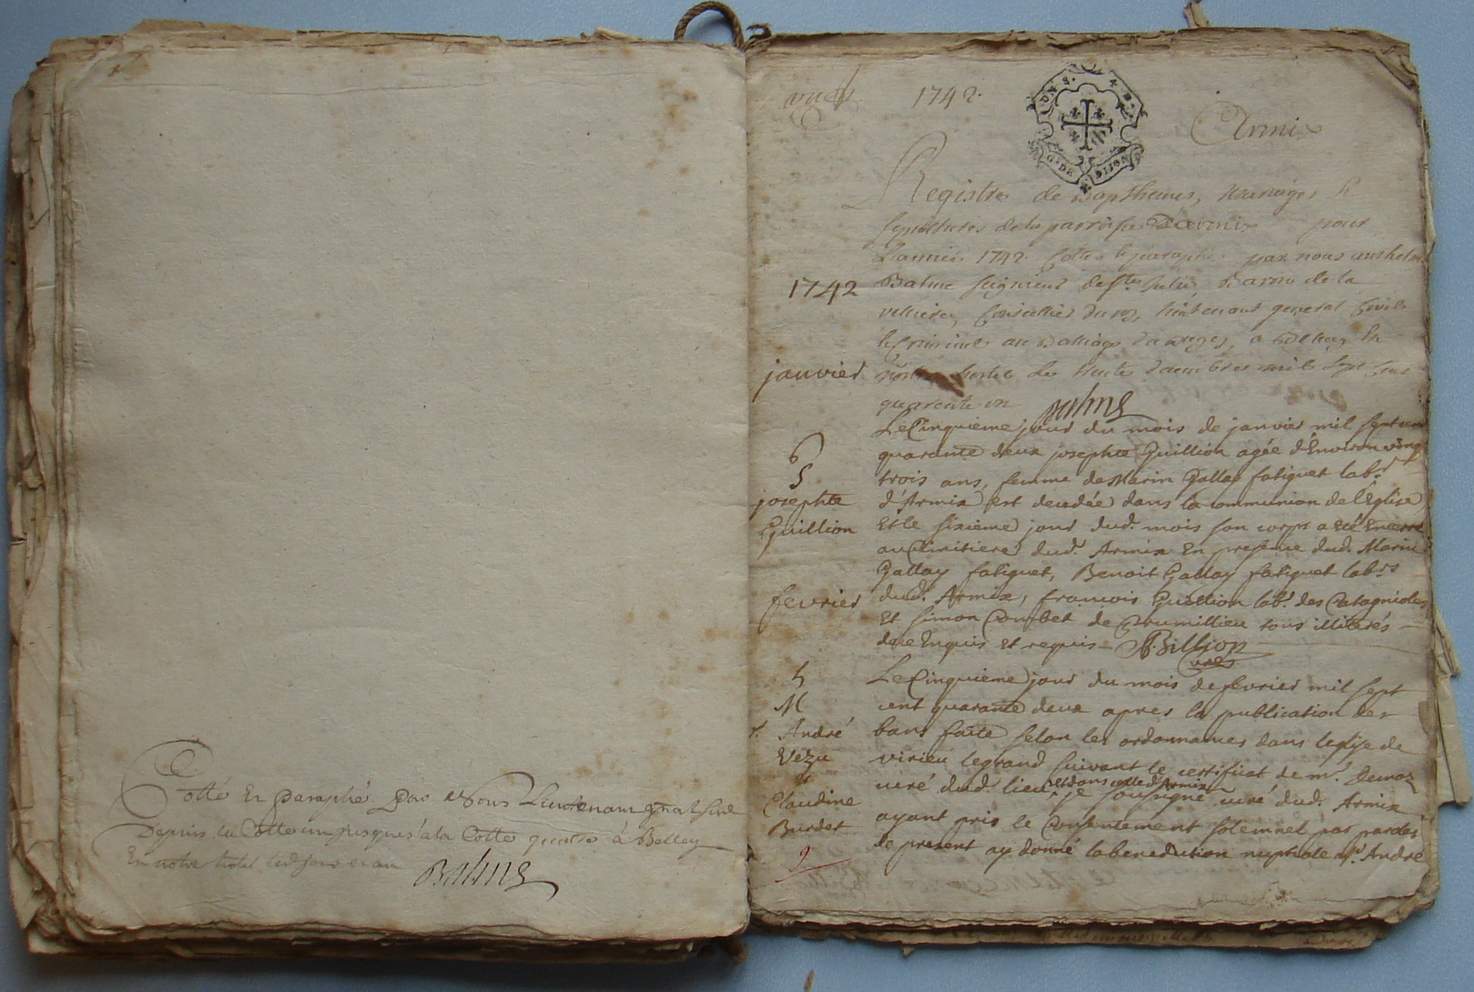 Cotté et Paraphé par Nous Lieutenant gñal Civil
Depuis la Cotte un jusques a la Cotte quatre à Belley
En notre hotel led. jour et an
Balme
1742.
UN S. 4 D.
G. DE DIJON
Armix
Registre de Bapthemes, mariages et
sepultures de la parroisse Darmix pour
L'année 1742 Cotté et paraphé par nous anthelme
1742
Balme seigneur de Ste Julie Baron de la
velliere, Conseiller du roy, lieutenant general Civil
et Criminel au Balliage de Bugey, a Belley En
janvier
notre hotel le trente decembre mil sept cent
quarente un Balme
Le Cinquieme jour du mois de janvier mil sept cent
quarante deux josephte Guillion agée d'Environ vingt
6
S
josephte
Guillion
trois ans, femme de Marin Gallay fatiguet labr.
d'Armix est decedée dans la communion de l'Eglise
Et le sixieme jour dud. mois son corps a eté Enterré
au Cimitiere dud. Armix En presence dud. Marin
Gallay fatiguet, Benoit Gallay fatiguet labrs
fevrier
dud. Armix, françois Guillion labr. des Catagnoles
Et simon Combet de Crumillieu tous illiterés
de ce Enquis et requis Billion
curé
5
M
André
Vezu
&
Claudine
Burdet
Le Cinquieme jour du mois de fevrier mil sept
cent quarante deux apres la publication des
bans faite selon les ordonnances dans leglise de
virieu le grand suivant le certificat de mr. Demoz
curé dud. lieu et dans celle d'Armix je sousigné curé dud. Armix
ayant pris le Consentement solemnel par paroles
de present ay donné la benediction nuptiale a sr. André
2